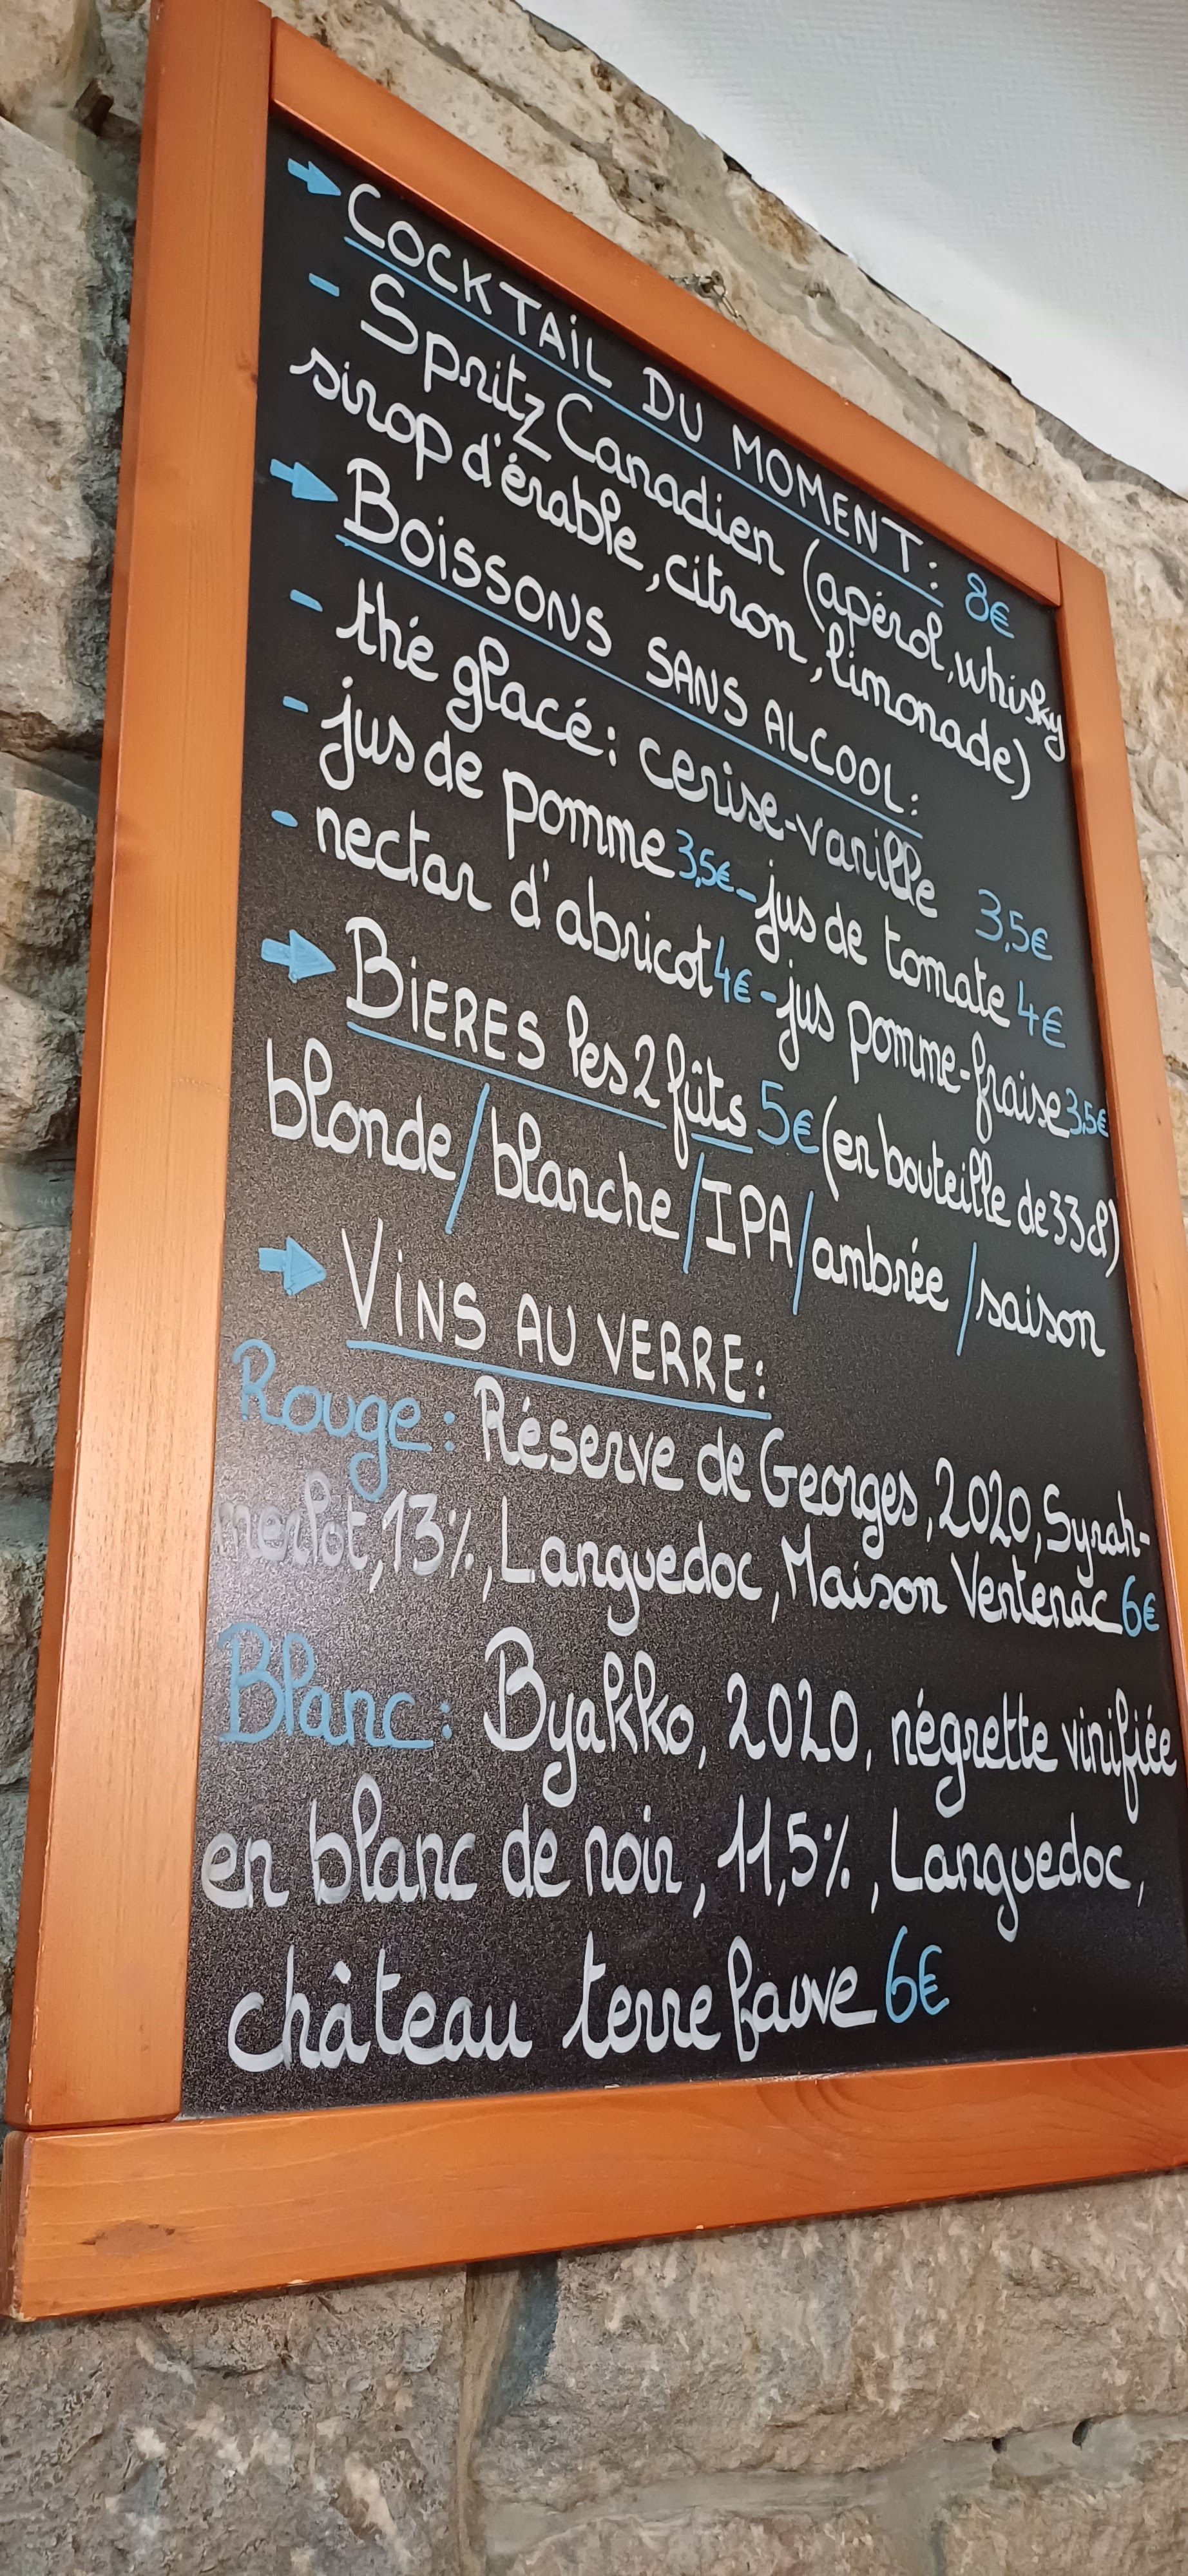 COCKTAIL DU MOMENT : 8€
- Spritz Canadien (apérol, whisky
sirop d'érable, citron, limonade)
BOISSONS SANS ALCOOL :
- thé glacé : cerise-vanille 3,5€
- jus de pomme 3,5€ - jus de tomate 4€
- nectar d'abricot 4€ - jus pomme-fraise 3,5€
BIERES les 2 fûts 5€ (en bouteille de 33cl)
blonde / blanche / IPA / ambrée / saison
VINS AU VERRE :
Rouge : Réserve de Georges, 2020, Syrah-
merlot, 13%, Languedoc, Maison Ventenac 6€
Blanc : Byakko, 2020, négrette vinifiée
en blanc de noir, 11,5%, Languedoc,
château terre fauve 6€